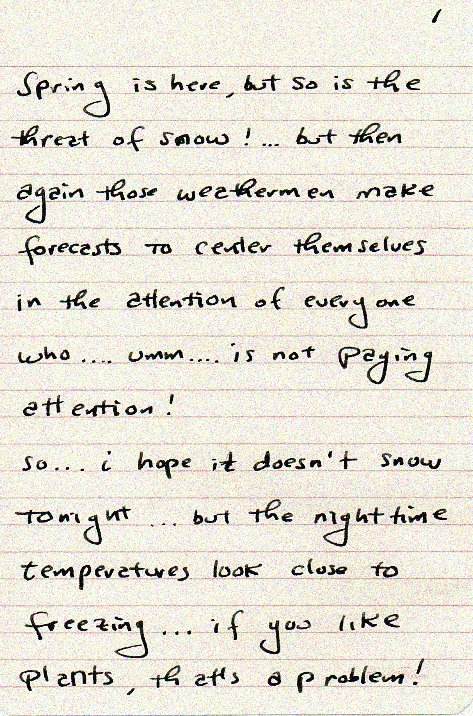 1
Spring is here, but so is the
threat of snow!... but then
again those weathermen make
forecasts to center themselves
in the attention of everyone
who.... umm.... is not paying
attention!
so... i hope it doesn't snow
tonight ... but the nighttime
temperatures look close to
freezing... if you like
plants, that's a problem!